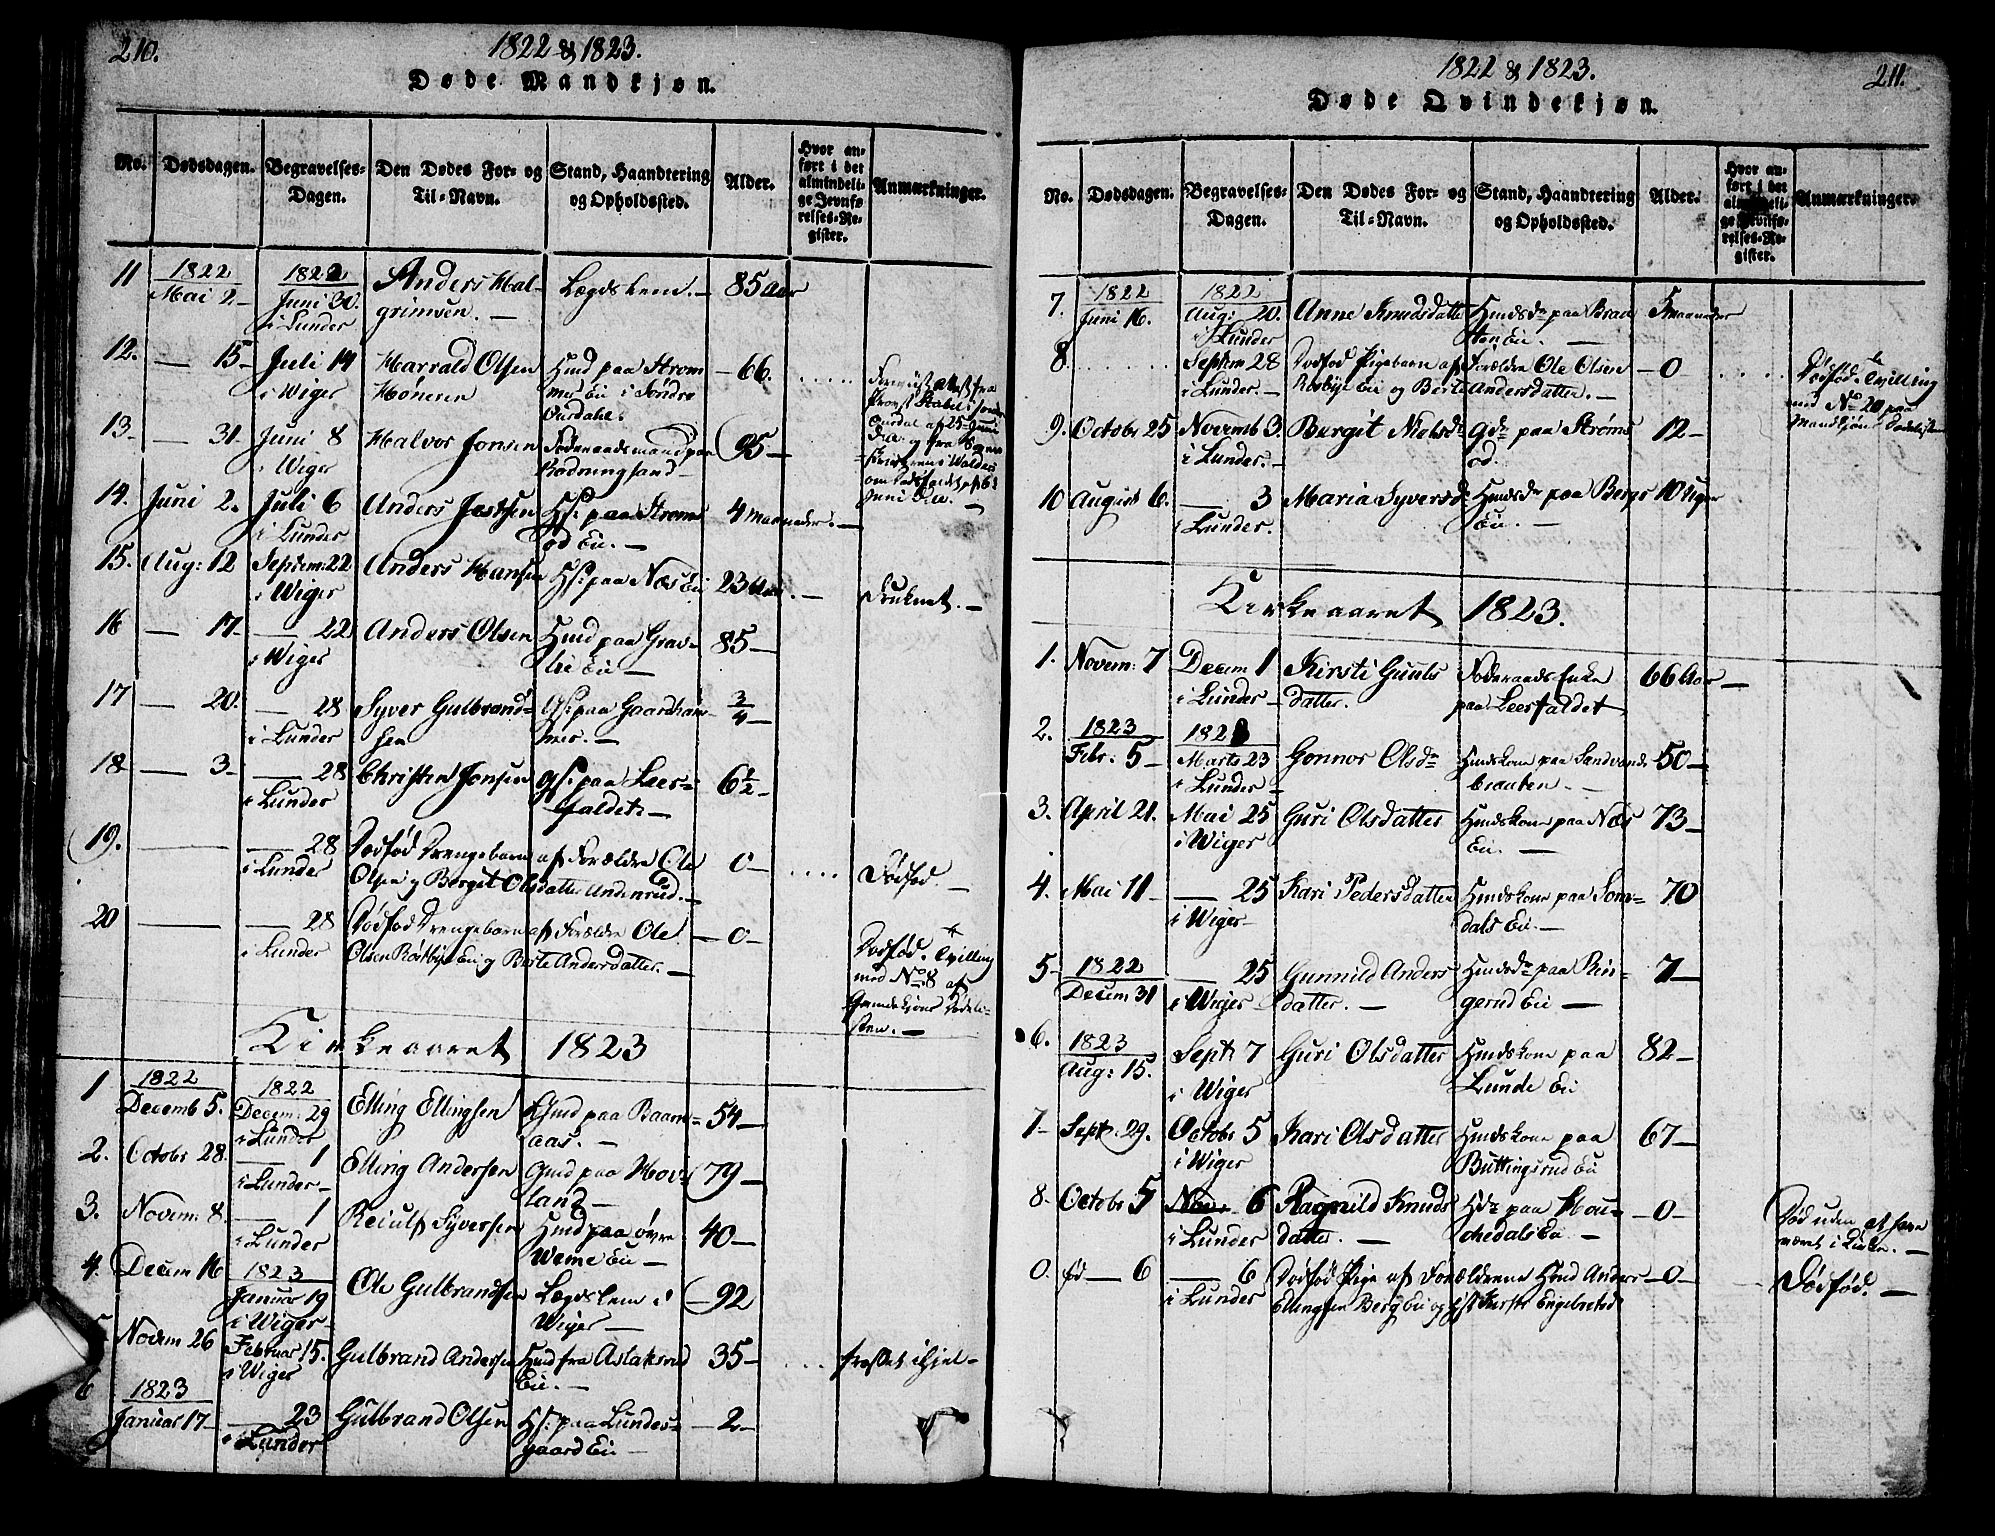 210.
1822 & 1823.
Døde Mandkjøn.
No. Dødsdagen. Begravelses-Dagen. Den Dødes For- og Til-Navn. Stand, Haandtering og Opholdssted. Alder. Hvor anført i det almindelige Jevnførelses-Register. Anmærkninger.
11 1822 Mai 2 1822 Juni 30. i Lunder Anders Halgrimsen. Lægdslem. 85 Aar
12. 15 Juli 14 i Wiger Harrald Olsen Høneren Hmd paa Strømmes Ei i Søndre Ourdahl. 66.
13. 31. Juni 8 i Wiger Halvor Jonsen Føderaadsmand paa 95
14. Juni 2. Juli 6 i Lunder Anders Hs: paa Strømsød Ei. 4 Maaneder.
15. Aug: 12 Septem: 22 i Wiger Anders Hansen Hs: paa Næs Ei 23 Aar. Druknet.
16 17 22 i Wiger Anders Olsen Hmd paa 85
17 20. 28 i Lunder Syver Gulbrandsen Gs: paa Gaardhammer. 3/4
18 3 28 i Lunder Christen Jonsen Gs: paa Leersfaldet. 6 1/2
19. 28 i Lunder Dødfød Drengebarn af Forældre Ole Olsen og Bergit Olsdatter Andersrud. 0 Dødfød.
20 28 i Lunder Dødfød Drengebarn af Forældre Ole Olsen Røsbye Ei og Berte Andersdatter. 0 Dødfød. Tvilling med No 8 af Qvindekjøns Dødelisten.
Kirkeaaret 1823
1 1822 Decemb 5. 1822 Decem: 29 i Lunder Elling Ellingsen Gmd paa Baarnaas. 54
2. Octobr 28. 1 i Lunder Elling Andersen Gmd paa Hovland 79
3. Novem: 8. 1 i Lunder Reiulf Syversen Hmd paa øvre Weme Ei 40
4. Decem 16 1823 Januar 19 i Wiger Ole Gulbrandsen Lægdslem i Wiger 92
5. Novem 26 Februar 15. i Wiger Gulbrand Andersen Hmd fra Aslaksrud Ei. 35 frosset ihjel
6 1823 Januar 17 23 i Lunder Gulbrand Olsen Hs: paa Lundesgaard Ei 2
1822 & 1823.
211.
Døde Qvindekjøn.
No. Dødsdagen. Begravelses-Dagen. Den Dødes For- og Til-Navn. Stand, Haandtering og Opholdssted. Alder. Hvor anført i det almindelige Jevnførelses-Register. Anmærkninger.
7. 1822 Juni 16. 1822 Aug: 20. i Lunder Anne Knudsdatter Hmdsdr paa Ei. 5 Maaneder
8. Septem 28 i Lunder. Dødfød Pigebarn af Forældre Ole Olsen Røsbye Ei og Berte Andersdatter. 0 Dødfød. Tvilling med No 20 paa Mandkjøns Dødelisten
9. Octobr 25 Novemb 3. i Lunder. Bergit Nielsdr Gdr paa Strømsød. 12
10 August 6. 3 i Lunder. Maria Syversdr Hmdsdr paa Bergs Ei. 10 Uger
Kirkeaaret 1823.
1. Novem: 7 Decem 1 i Lunder Kirsti Guulsdatter. Føderaads Enke paa Leersfaldet 66 Aar
2. 1823 Febr. 5 1823 Marts 23 i Lunder Gonnor Olsdr Hmdskone paa Sandvandsbraaten. 50
3. April 21. Mai 25 i Wiger Guri Olsdatter Hmdskone paa Næs Ei. 73
4. Mai 11 25 i Wiger Kari Pedersdatter Hmdskone paa Somdals Ei. 70
5 1822 Decem 31 25 i Wiger Gunnild Andersdatter. Hmdsdr paa Ringerud Ei 7
6. 1823 Aug: 15. Sept: 7 i Wiger Guri Olsdatter Hmdskone paa Lunde Ei 82
7 Sept: 29. Octobr 5 i Wiger Kari Olsdatter Hmdskone paa Buttingsrud Ei 67
8. Octobr 5 6 i Lunder Ragnild Knudsdatter. Hdr paa 0 Død uden at have været i Kirke.
0. 6 6 i Lunder Dødfød Pige af Forældrene Hmd Anders Ellingsen Berg Ei og 0 Dødfød.